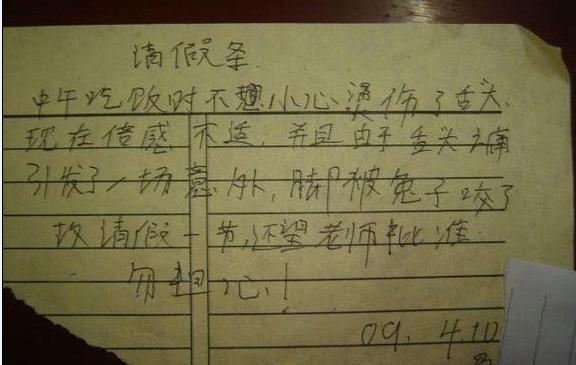 请假条.
中午吃饭时不想小心烫伤了舌头.
现在倍感不适,并且由于舌头之痛
引发了一场意外,脚被兔子咬了
故请假一节,还望老师批准.
勿担心!
09. 4.10